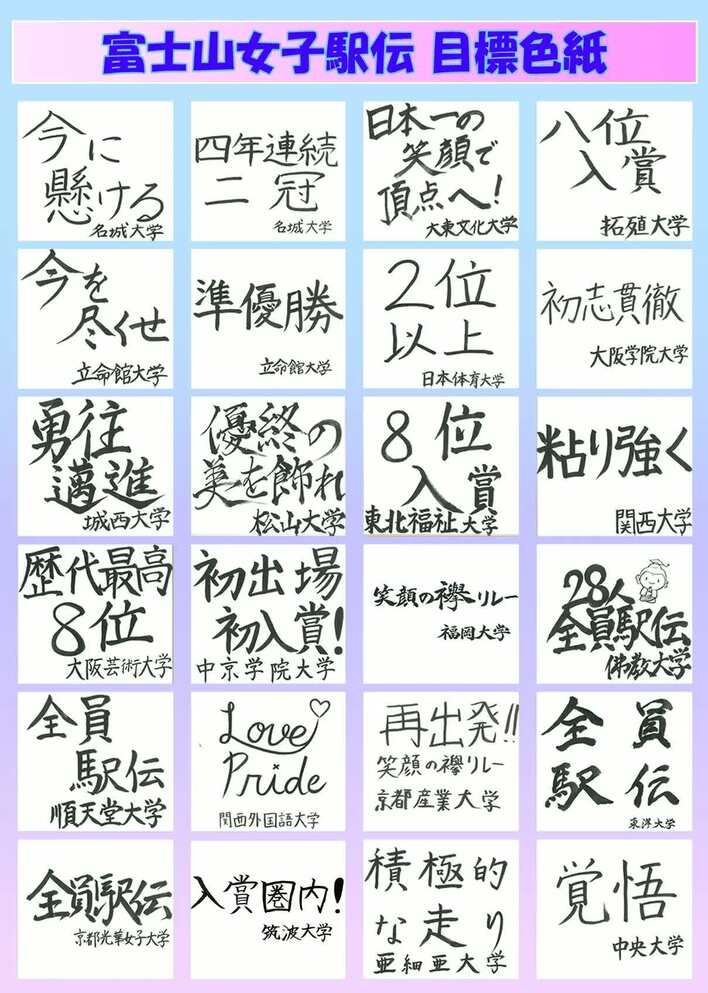 富士山女子駅伝 目標色紙
今に
懸ける
名城大学
四年連続
二冠
名城大学
日本一の
笑顔で
頂点へ!
大東文化大学
八位
入賞
拓殖大学
今を
尽くせ
立命館大学
準優勝
立命館大学
2位
以上
日本体育大学
初志貫徹
大阪学院大学
勇往
邁進
城西大学
優終の
美を飾れ
松山大学
8位
入賞
東北福祉大学
粘り強く
関西大学
歴代最高
8位
大阪芸術大学
初出場
初入賞!
中京学院大学
笑顔の襷リレー
福岡大学
28人
全員駅伝
佛教大学
全員
駅伝
順天堂大学
Love
Pride
関西外国語大学
再出発!!
笑顔の襷リレー
京都産業大学
全員
駅伝
東洋大学
全員駅伝
京都光華女子大学
入賞圏内!
筑波大学
積極的
な走り
亜細亜大学
覚悟
中央大学